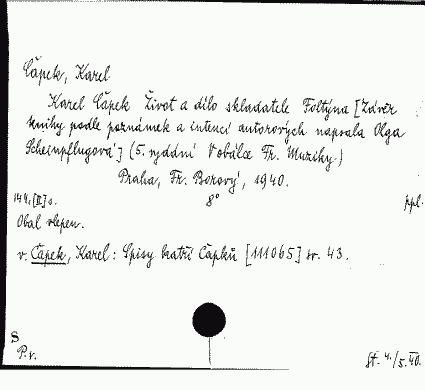 Čapek, Karel
Karel Čapek Život a dílo skladatele Foltýna [Závěr
knihy podle poznámek a intencí autorových napsala Olga
Scheinpflugová] (5. vydání V obálce Fr. Muziky.)
Praha, Fr. Borový, 1940.
144, [II] s. 8° ppl.
Obal vlepen.
v. Čapek, Karel: Spisy bratří Čapků [111065] sv. 43.
S
P. v. St. 4./5.40.